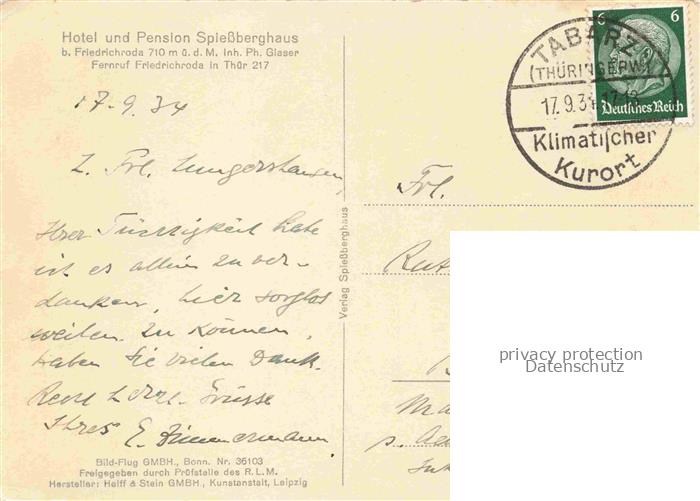 Hotel und Pension Spießberghaus
b. Friedrichroda 710 m ü. d. M. Inh. Ph. Glaser
Fernruf Friedrichroda in Thür 217
17.9.34
L. Frl. Lungershausen,
Ihrer Tüchtigkeit habe
ich es allein zu ver-
danken, hier sorglos
weilen zu können,
haben Sie vielen Dank.
Recht herzl. Grüsse
Ihres E. Zimmermann.
Bild-Flug GMBH., Bonn. Nr. 36103
Freigegeben durch Prüfstelle des R.L.M.
Hersteller: Helff & Stein GMBH., Kunstanstalt, Leipzig
Verlag Spießberghaus
6 6
Deutsches Reich
TABARZ
(THÜRINGERW.)
17.9.34 17-18
Klimatischer
Kurort
Frl.
privacy protection
Datenschutz